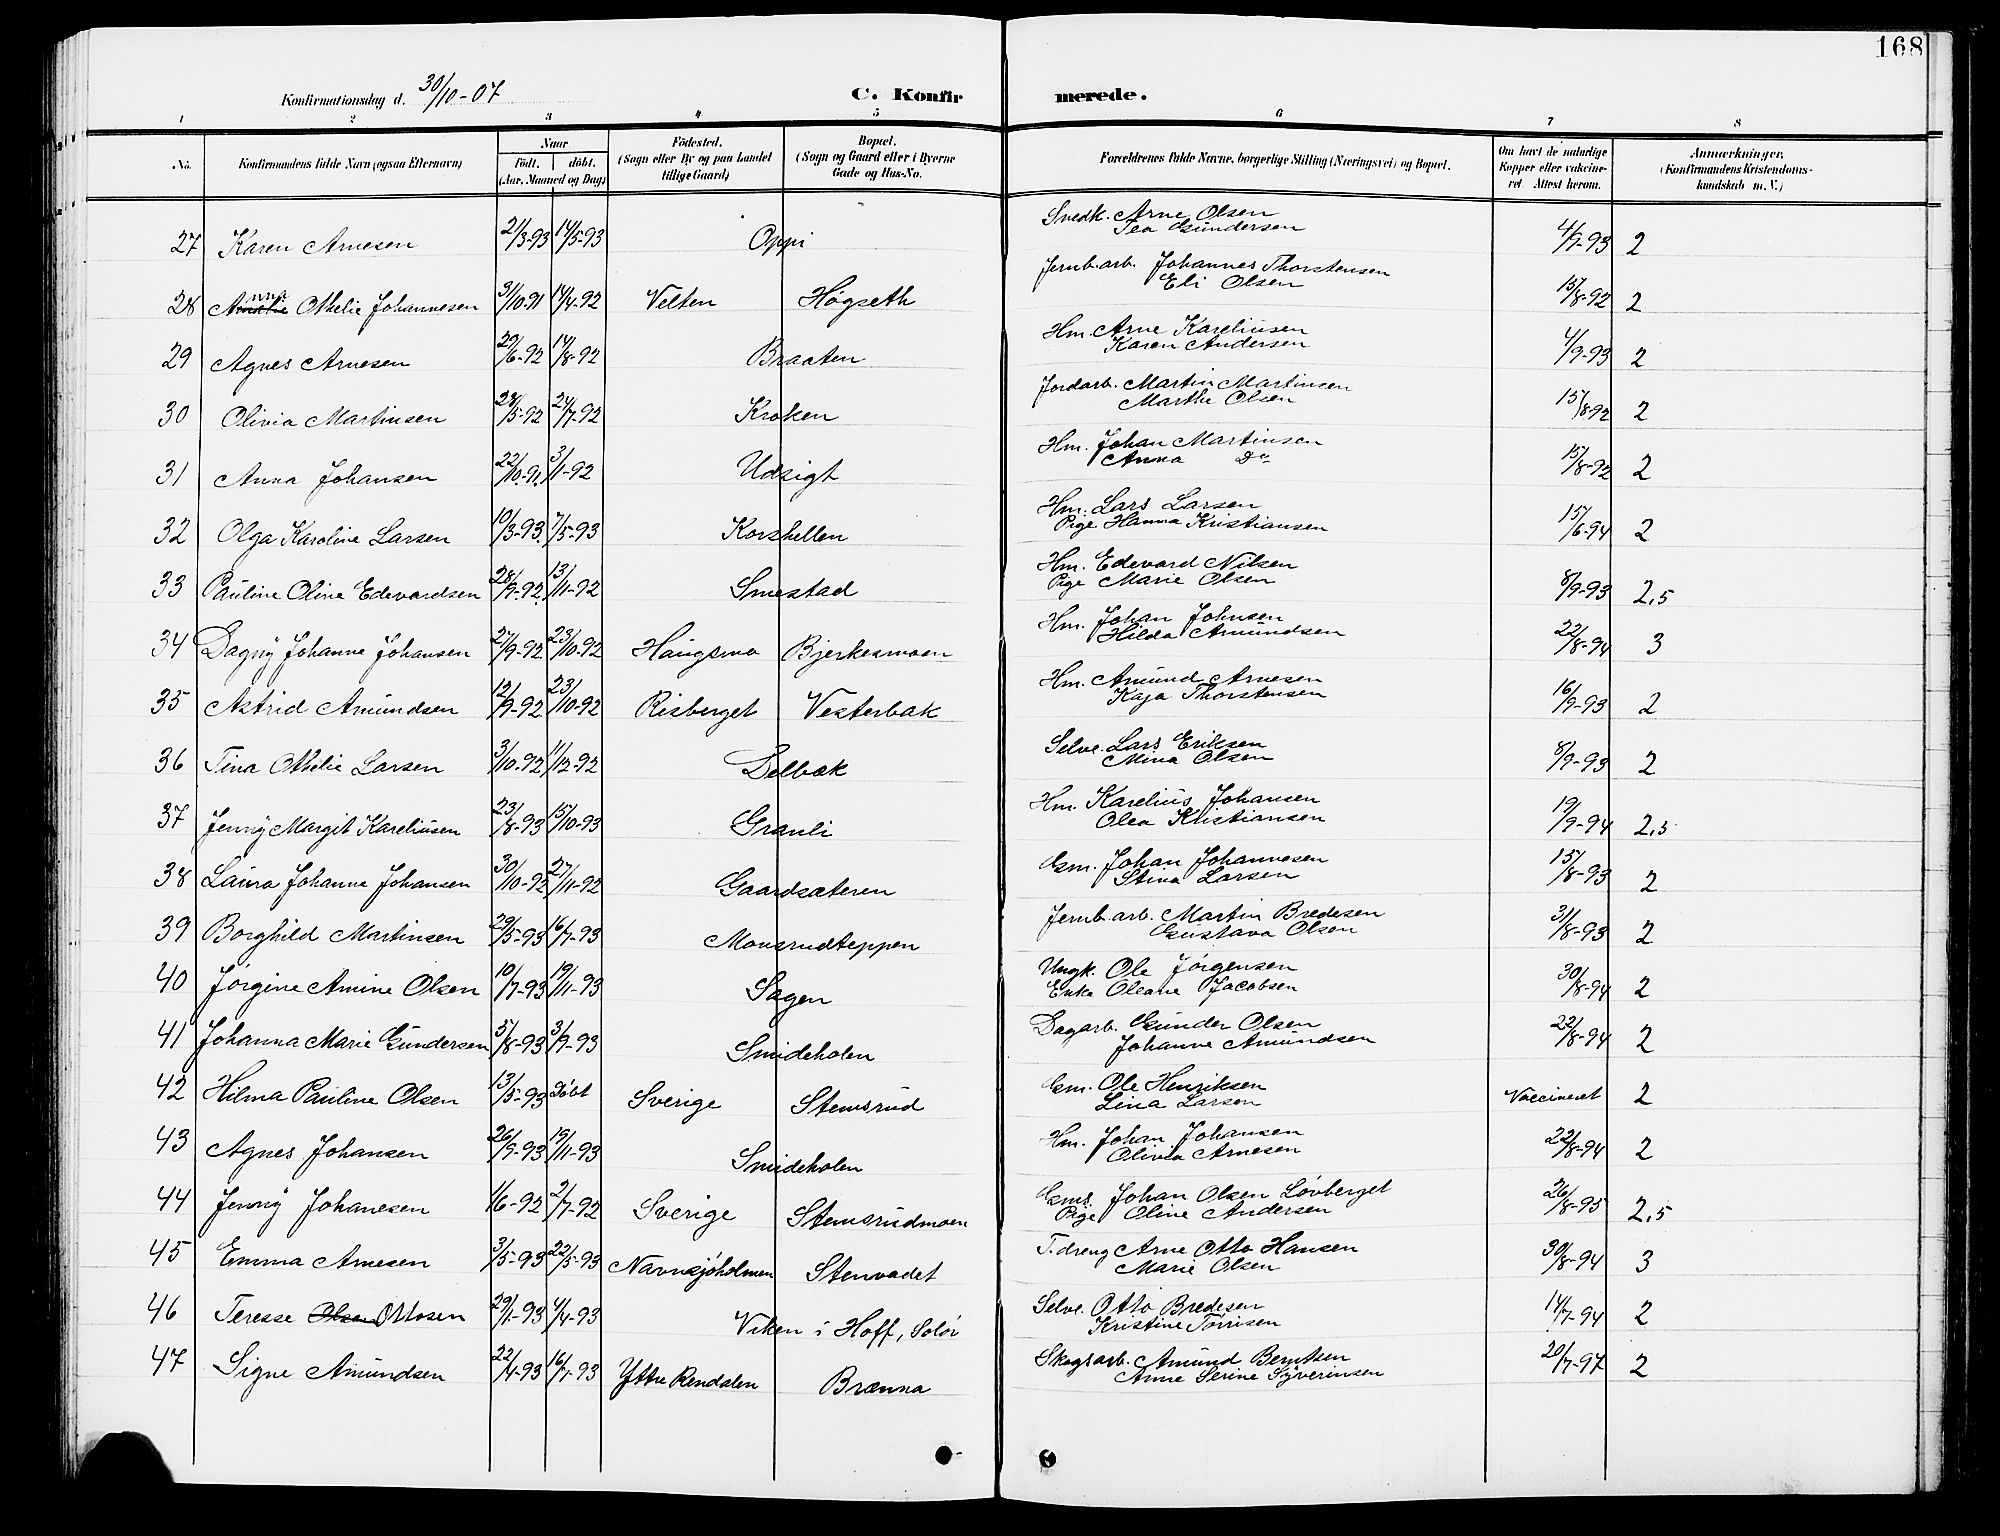 168
Konfirmationsdag d. 30/10-07 C. Konfirmerede.
1 2 3 4 5 6 7 8
No. Konfirmandens fulde Navn (ogsaa Efternavn) Naar födt. döbt. (Aar, Maaned og Dag) Födested. (Sogn eller By og paa Landet tillige Gaard) Bopæl. (Sogn og Gaard eller i Byerne Gade og Hus-No. Forældrenes fulde Navne, borgerlige Stilling (Næringsvei) og Bopæl. Om havt de naturlige Kopper eller vakcineret. Attest herom. Anmærkninger, (Konfirmandens Kristendomskundskab m. V.)
27 Karen Arnesen 21/3-93 14/5-93 Oppi Snedk. Arne Olsen 4/9-93 2
Tea Gundersen
28 Amalie nna Othelie Johannesen 3/10-91 14/4-92 Velten Høgseth Jernb.arb. Johannes Thorstensen 15/8-92 2
Eli Olsen
29 Agnes Arnesen 29/6-92 14/8-92 Braaten Hm. Arne Kareliusen 4/9-93 2
Karen Andersen
30 Olivia Martinsen 28/5-92 24/7-92 Kroken Jordarb. Martin Martinsen 15/8-92 2
Marthe Olsen
31 Anna Johansen 22/10-91. 3/1-92 Udsigt Hm. Johan Martinsen 15/8-92 2
Anna Do
32 Olga Karoline Larsen 10/3-93. 7/5-93 Korshellen Hm. Lars Larsen 15/6-94 2
Pige Hanna Kristiansen
33 Pauline Oline Edevardsen 28/9-92. 13/11-92 Smestad Hm. Edevard Nilsen 8/9-93 2,5
Pige Marie Olsen
34 Dagny Johanne Johansen 27/9-92. 23/10-92 Haugsmo Bjerkesmoen Hm. Johan Johnsen 22/8-94 3
Hilda Amundsen
35 Astrid Amundsen 12/9-92. 23/10-92 Risberget Vesterbak Hm. Amund Arnesen 16/9-93 2
Kaja Thorstensen
36 Tina Othilie Larsen 3/10-92 11/12-92 Delbæk Selve. Lars Eriksen 8/9-93 2
Mina Olsen
37 Jenny Margit Kareliusen 23/8-93 15/10-93 Granli Hm. Karelius Johansen 19/9-94 2,5
Olea Kristiansen
38 Laura Johanne Johansen 30/10-92 27/11-92 Gaardsæteren Gm. Johan Johannesen 15/8-93 2
Stina Larsen
39 Borghild Martinsen 29/5-93 16/7-93 Monsrudteppen Jernb.arb. Martin Bredesen 31/8-93 2
Gustava Olsen
40 Jørgine Amine Olsen 10/7-93 19/11-93 Sagen Ungk. Ole Jørgensen 30/8-94 2
Enke Oleane Jacobsen
41 Johanna Marie Gundersen 5/8-93 3/9-93 Smideholen Dagarb. Gunder Olsen 22/8-94 2
Johanne Amundsen
42 Hilma Pauline Olsen 13/5-93 Døbt Sverige Stemsrud Gm. Ole Henriksen Vaccineret 2
Lina Larsen
43 Agnes Johansen 26/9-93 19/11-93 Smideholen Hm. Johan Johansen 22/8-94 2
Olivia Arnesen
44 Jenny Johanesen 1/6-92 2/7-92 Sverige Stemsrudmoen Gms. Johan Olsen Løvberget 26/8-95 2,5
Pige Oline Andersen
45 Emma Arnesen 3/5-93 22/5-93 Navnsjøholmen Stenvadet T.dreng Arne Otto Hansen 30/8-94 3
Marie Olsen
46 Terese Olsen Ottosen 29/1-93 4/4-93 Viken i Hoff, Solør Selve. Otto Bredesen 14/7-94 2
Kristine Tørrisen
47 Signe Amundsen 22/4-93 16/7-93 Yttre Rendalen Brænna Skogsarb. Amund Berntsen 20/7-97 2
Anne Serine Syverinsen